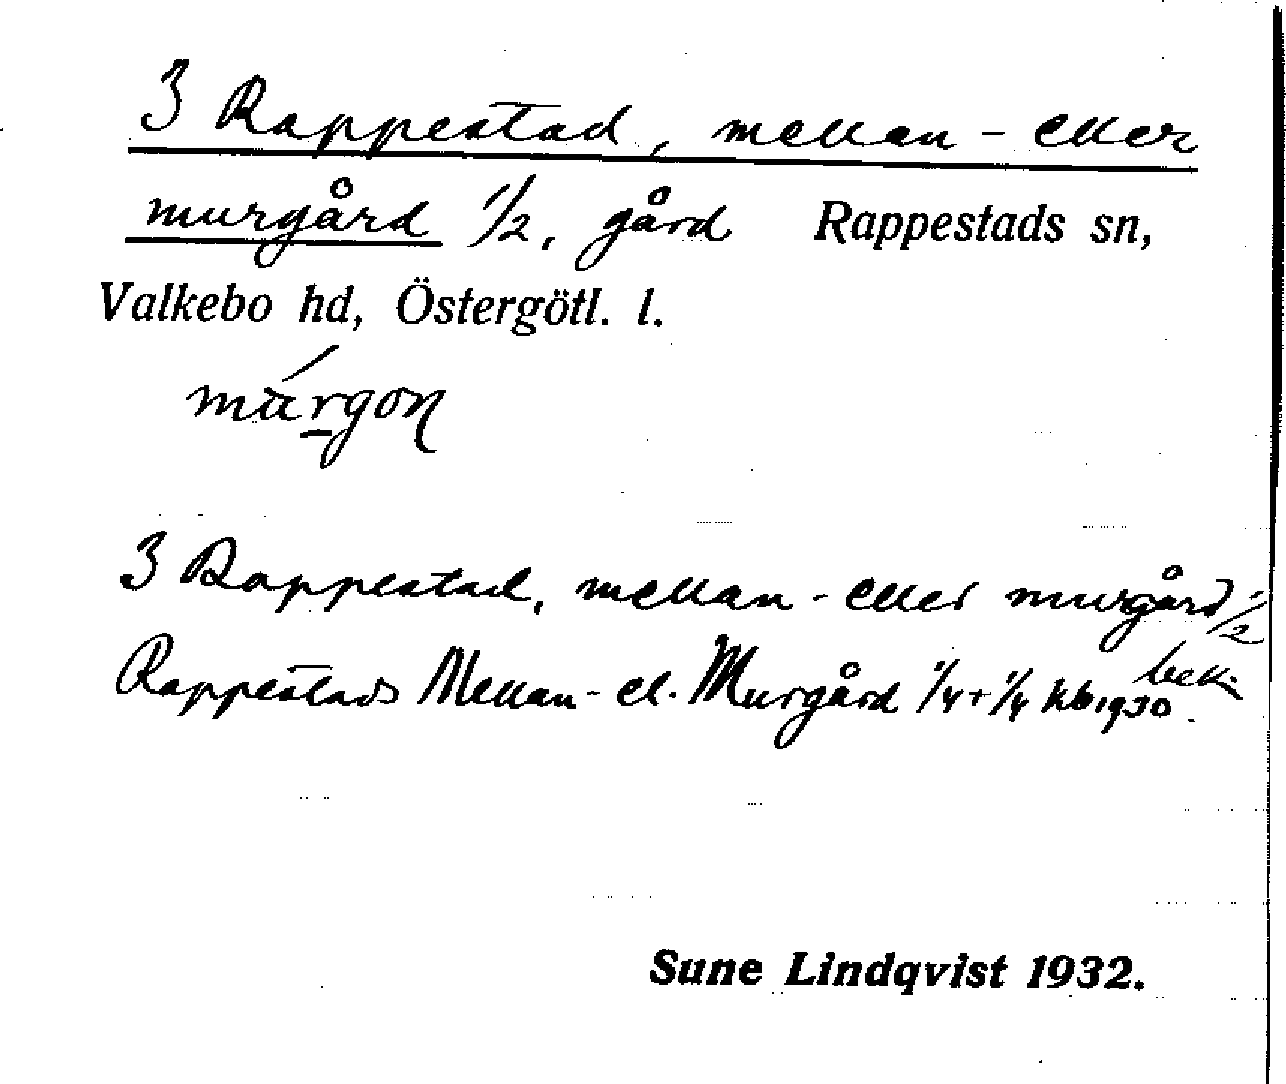 3 Rappestad, mellan- eller
murgård 1/2, gård Rappestads sn,
Valkebo hd, Östergötl. l.
3 Rappestad, mellan- eller murgård 1/2
Rappestads Mellan- el. Murgård 1/4+1/4 hb 1930
Sune Lindqvist 1932.